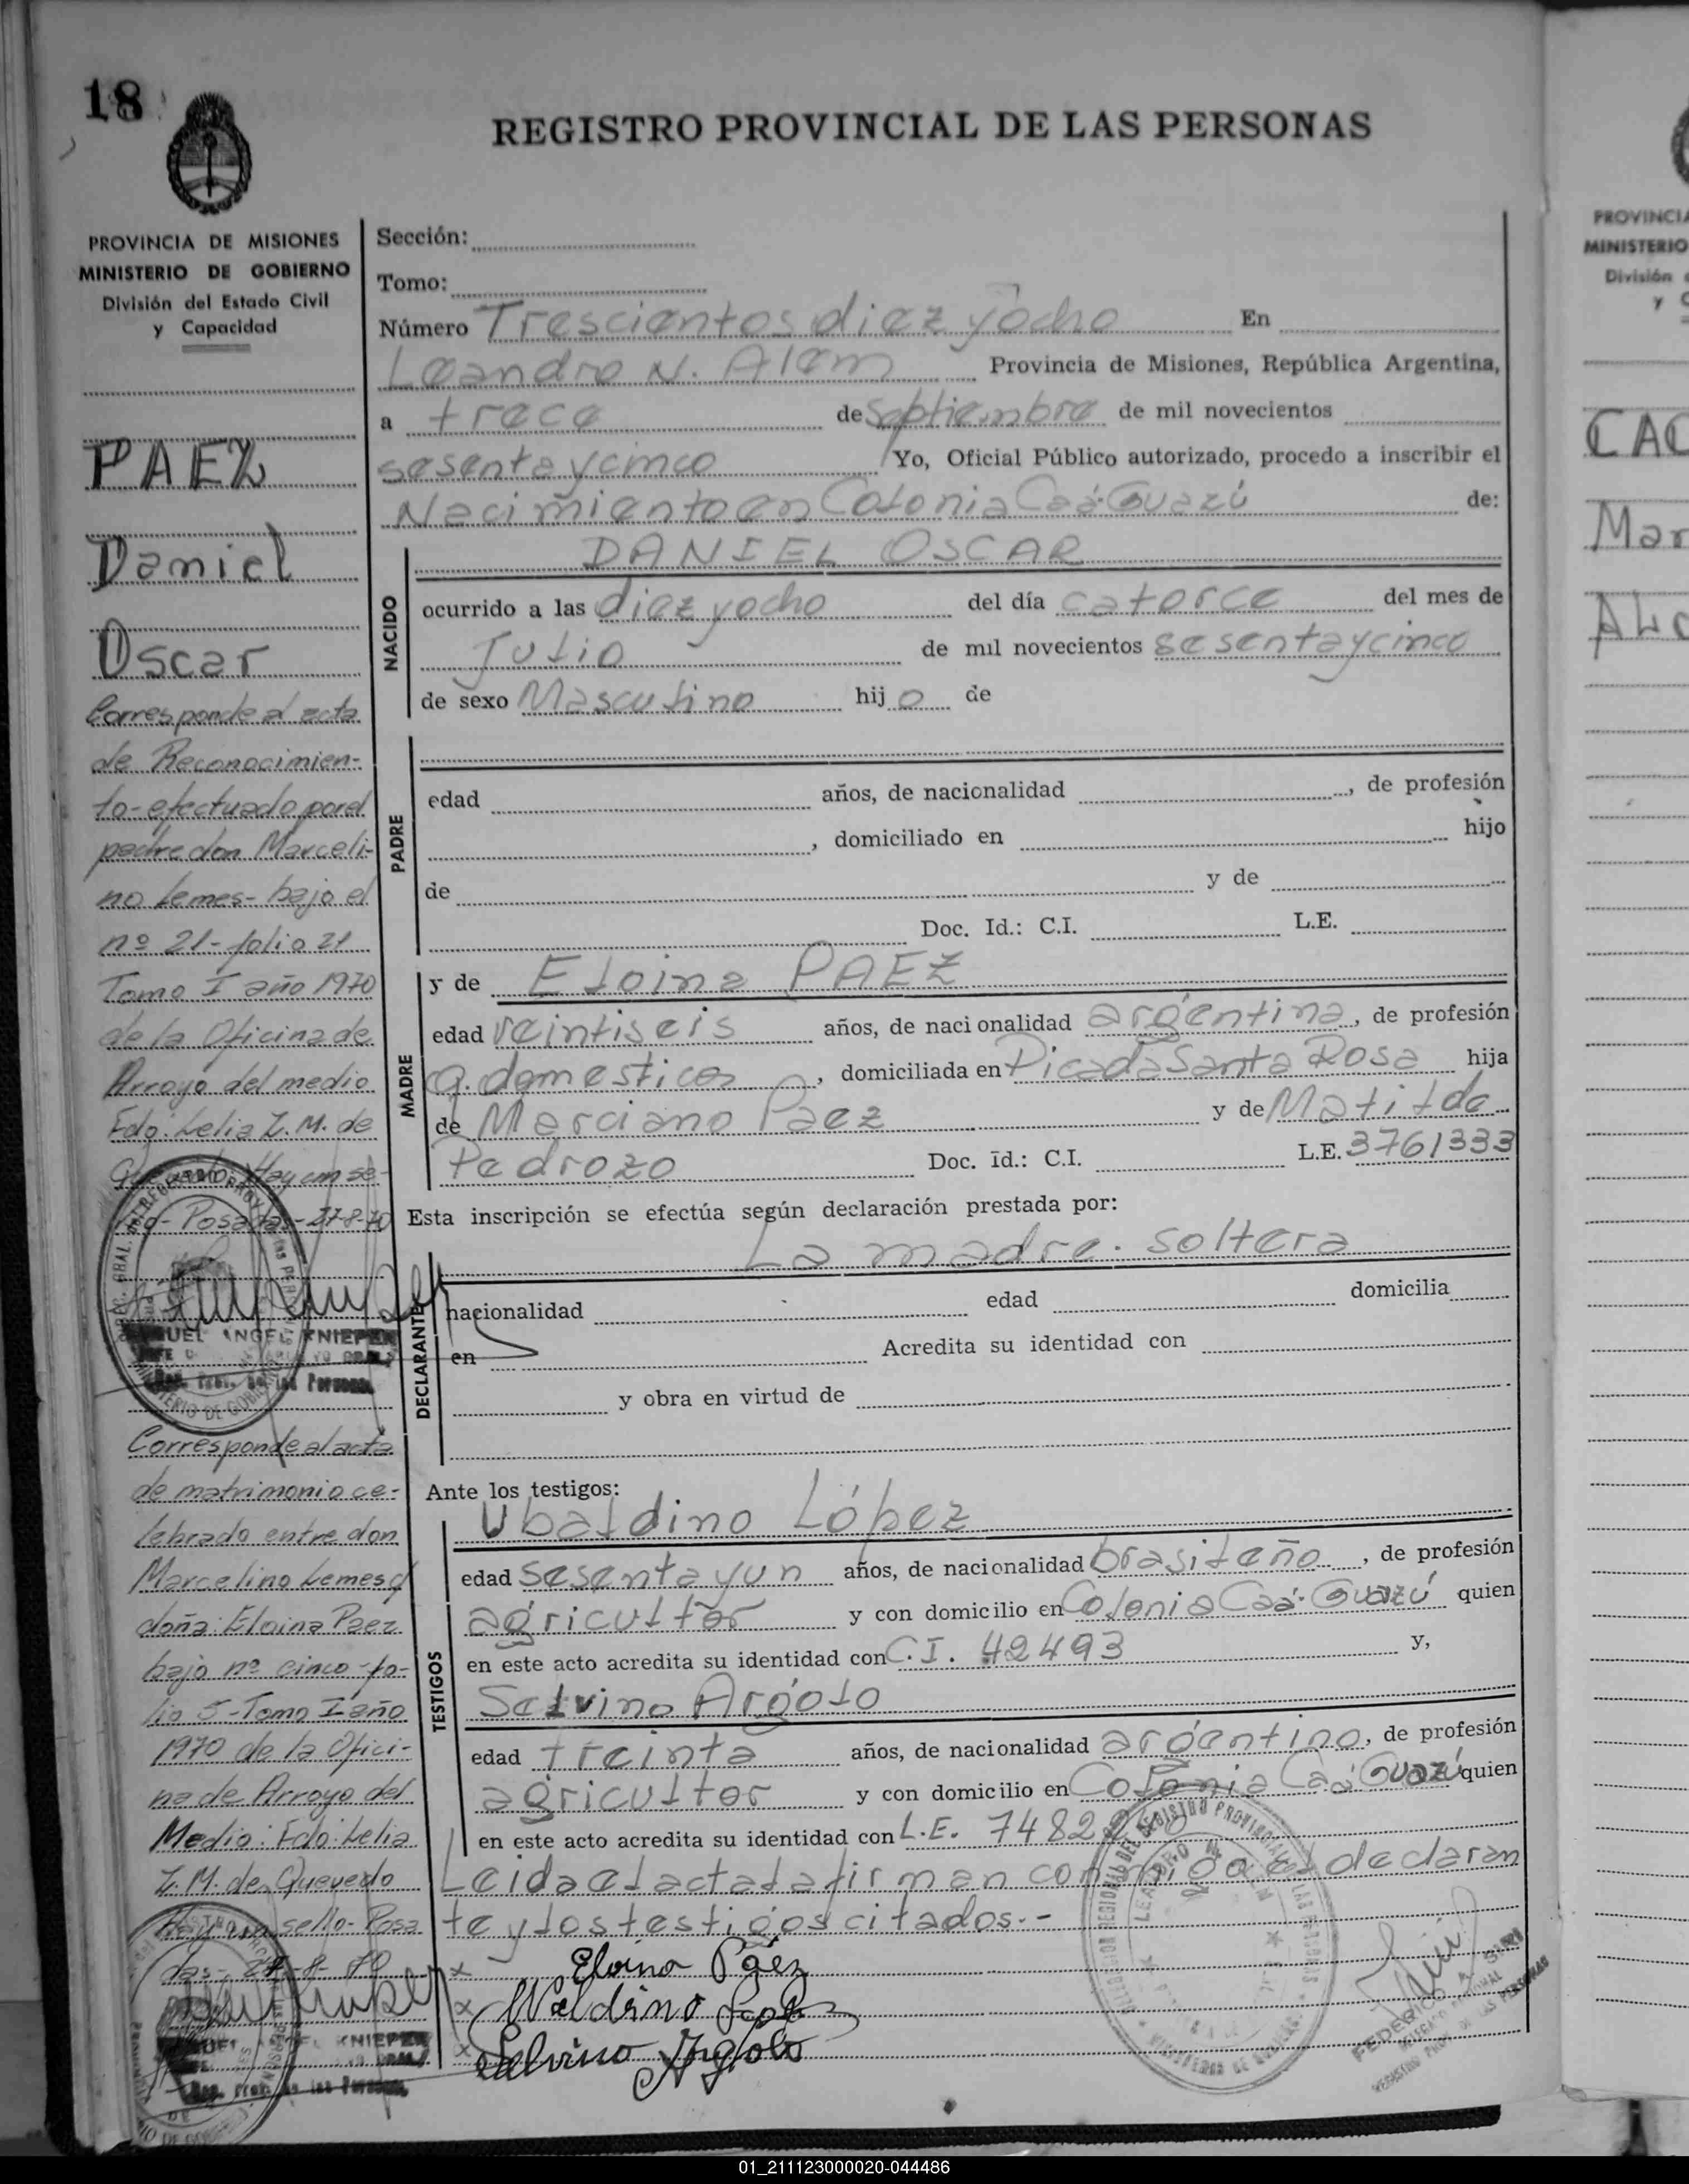 18
REGISTRO PROVINCIAL DE LAS PERSONAS
PROVINCIA DE MISIONES
MINISTERIO DE GOBIERNO
División del Estado Civil
y Capacidad
PAEZ
Daniel
Oscar
Corresponde al acta
de Reconocimien-
to-efectuado por el
padre don Marceli-
no Lemes-bajo el
nº 21-folio 21
Tomo I año 1970
de la Oficina de
Arroyo del medio
Fdo. Lelia Z. M. de
Hay un se-
Posadas-27-8-70
MINISTERIO DE GOBIERNO
ANGEL KNIEPER
Corresponde al acta
de matrimonio ce-
lebrado entre don
Marcelino Lemes y
doña: Eloina Paez
bajo nº cinco-fo-
lio 5-Tomo I año
1970 de la Ofici-
na de Arroyo del
Medio: Fdo: Lelia
Z. M. de Quevedo
Hay un sello-Posa
das-27-8-70
KNIEPER
Sección:
Tomo:
Número Trescientos diez y ocho En
Leandro N. Alem Provincia de Misiones, República Argentina,
a trece de Septiembre de mil novecientos
sesenta y cinco Yo, Oficial Público autorizado, procedo a inscribir el
Nacimiento en Colonia Caá-Guazú de:
DANIEL OSCAR
NACIDO
ocurrido a las diez y ocho del día catorce del mes de
Julio de mil novecientos sesenta y cinco
de sexo Masculino hijo de
PADRE
edad años, de nacionalidad , de profesión
, domiciliado en hijo
de y de
Doc. Id.: C.I. L.E.
MADRE
y de Eloina PAEZ
edad veintiseis años, de nacionalidad argentina, de profesión
q. domesticos, domiciliada en Picada Santa Rosa hija
de Marciano Paez y de Matilde
Pedrozo Doc. Id.: C.I. L.E. 3761333
Esta inscripción se efectúa según declaración prestada por:
La madre. soltera
DECLARANTE
nacionalidad edad domicilia
en Acredita su identidad con
y obra en virtud de
Ante los testigos:
TESTIGOS
Ubaldino López
edad sesenta y un años, de nacionalidad brasileño, de profesión
agricultor y con domicilio en Colonia Caá-Guazú quien
en este acto acredita su identidad con C.I. 42493 y,
Selvino Argolo
edad treinta años, de nacionalidad argentino, de profesión
agricultor y con domicilio en Colonia Caá Guazú quien
en este acto acredita su identidad con L.E. 7482
Leida el acta la firman conmigo el declaran
te y los testigos citados.-
x Eloina Páez
x Waldino
x Selvino Argolo
FEDERICO A.
REGISTRO PROV. DE LAS PERSONAS
PROVINCIA
MINISTERIO
División
y C
CAC
Mar
01_211123000020-044486